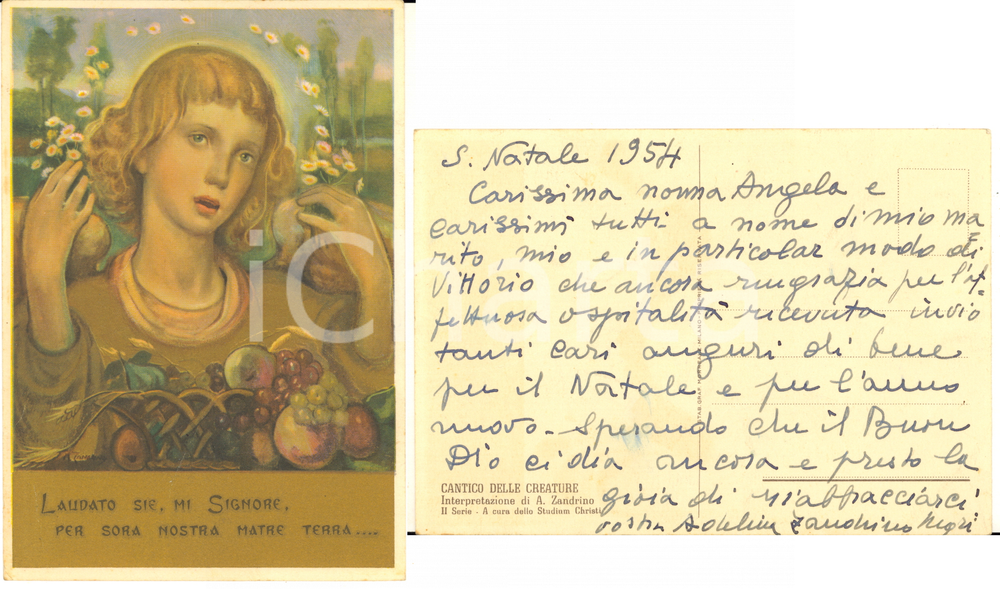 LAUDATO SIE, MI SIGNORE,
PER SORA NOSTRA MATRE TERRA....
S. Natale 1954
Carissima nonna Angela e
carissimi tutti a nome di mio ma
rito, mio e in particolar modo di
Vittorio che ancora ringrazia per l'af-
fettuosa ospitalità ricevuta invio
tanti cari auguri di bene
per il Natale e per l'anno
nuovo. Sperando che il Buon
Dio ci dia ancora e presto la
gioia di riabbracciarci
vostra Adelina Zandrino Negri
CANTICO DELLE CREATURE
Interpretazione di A. Zandrino
II Serie - A cura dello Studium Christi
iCharta